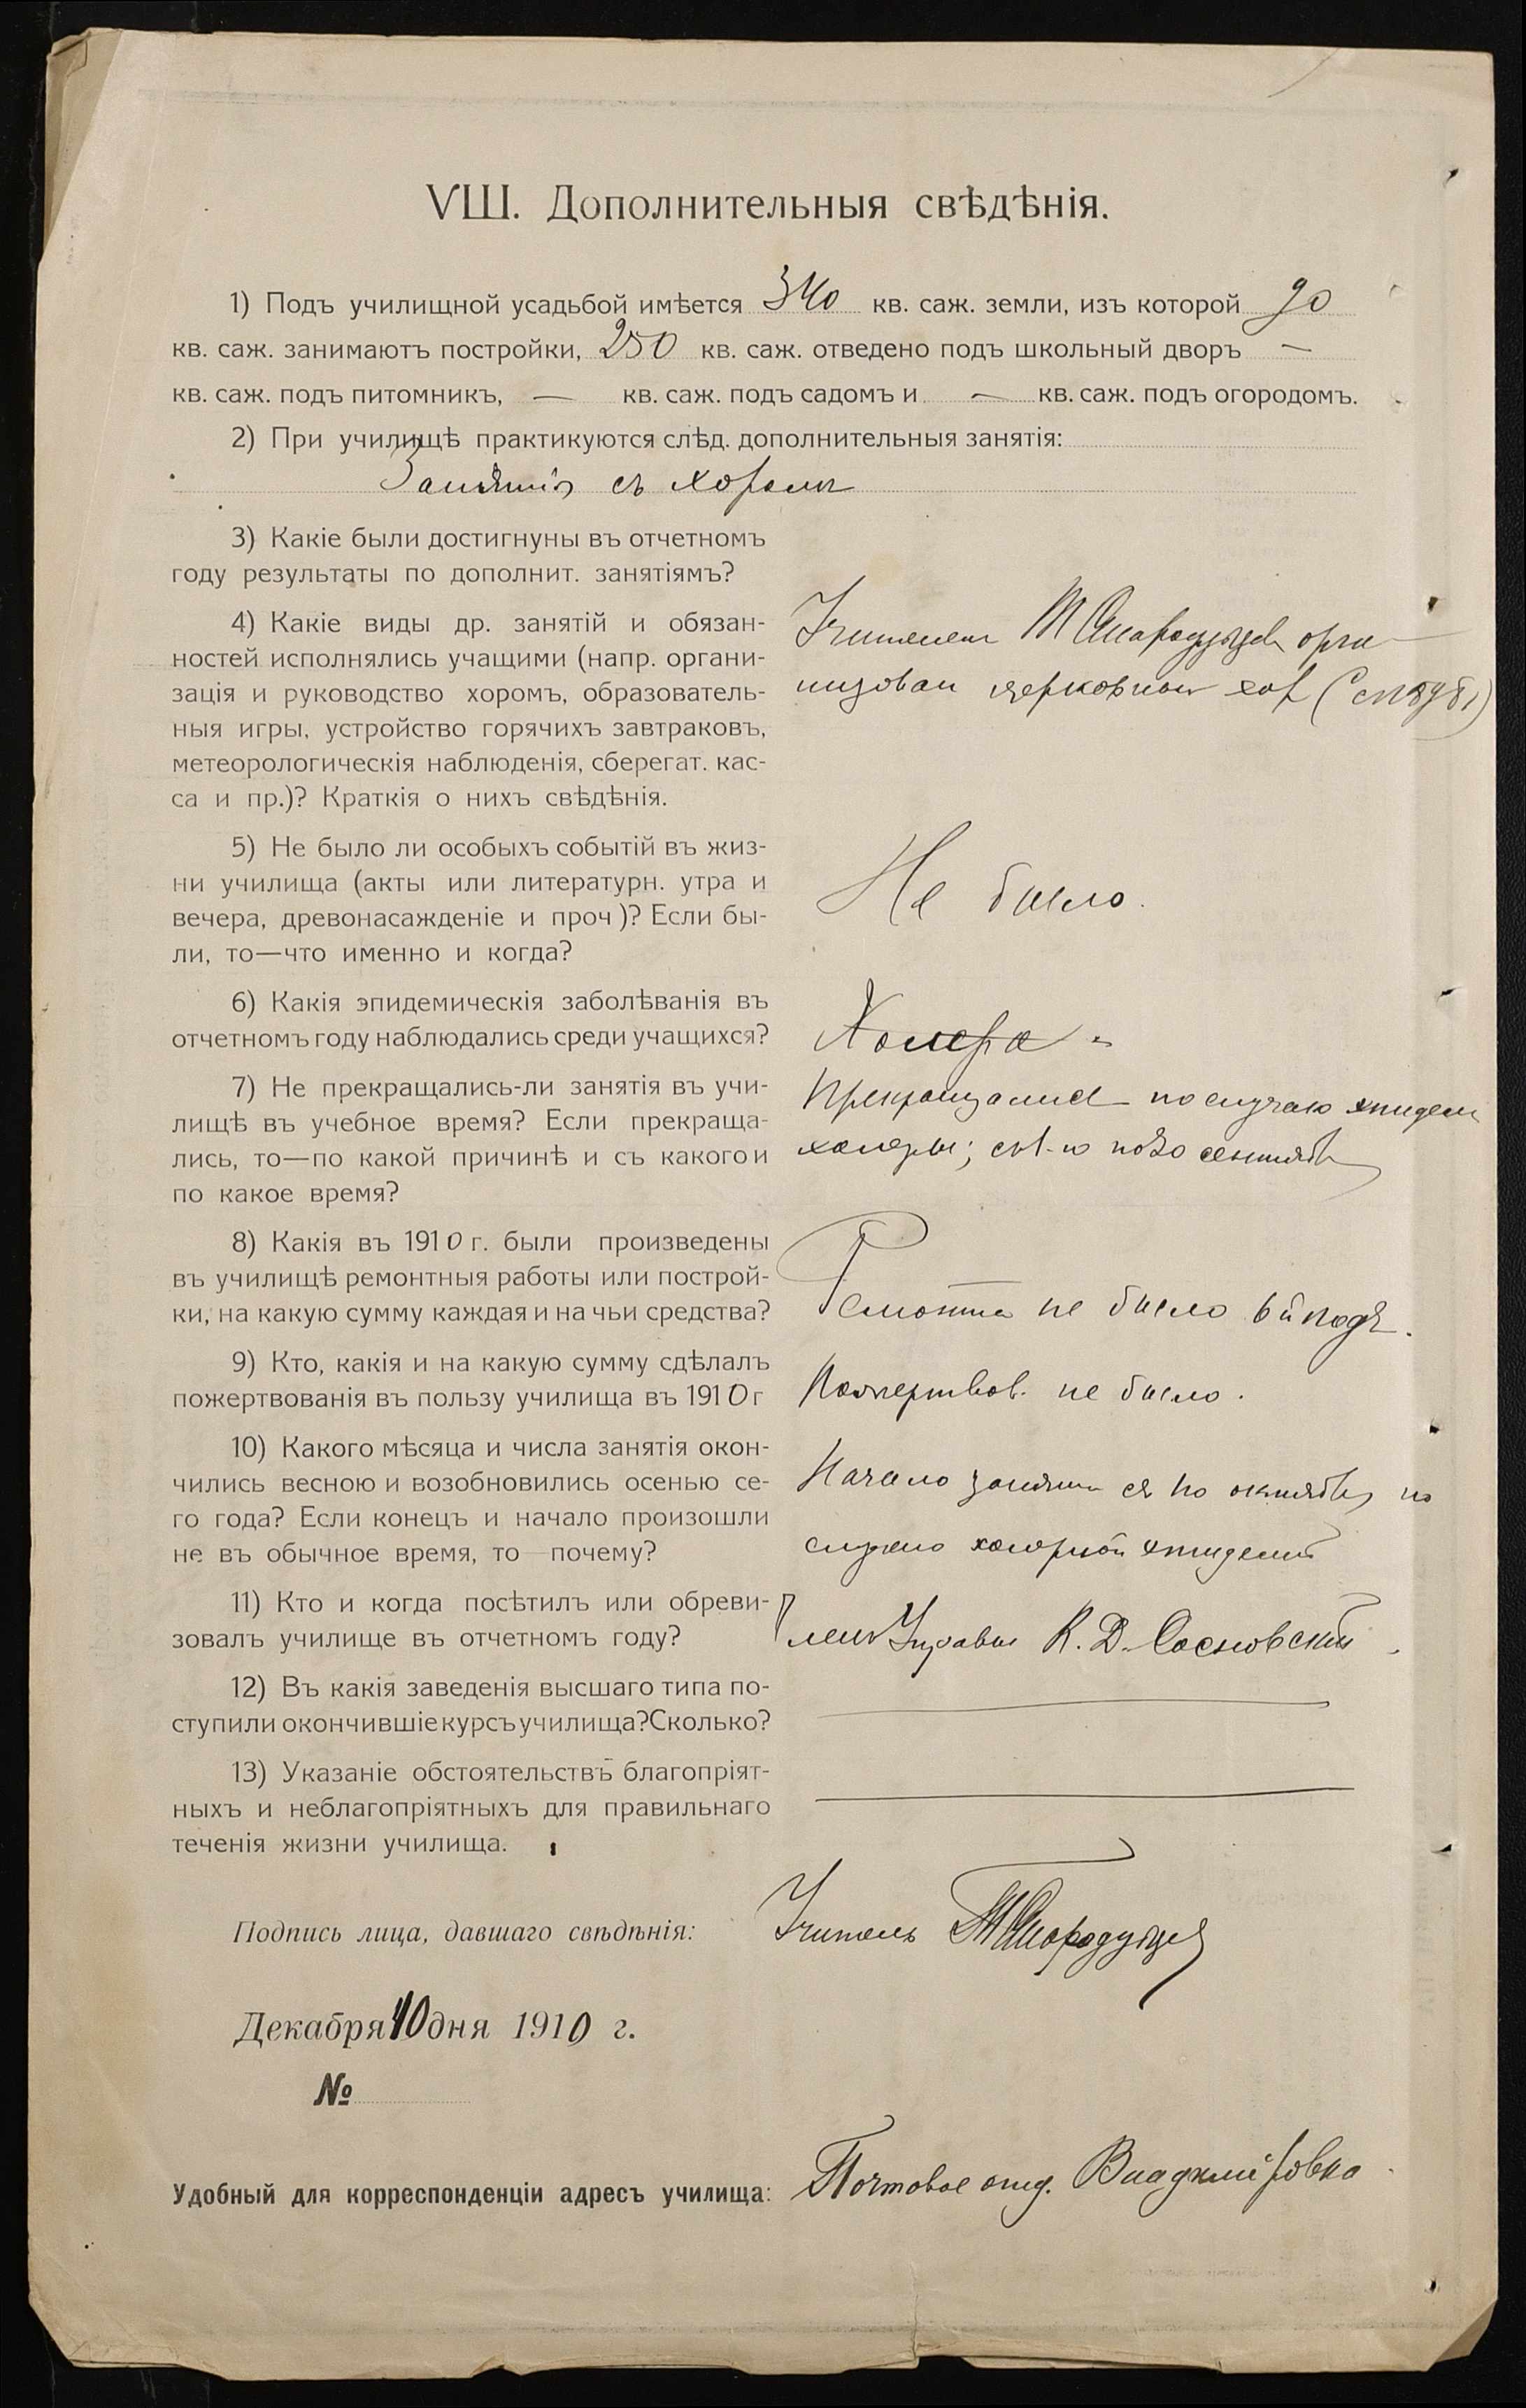 VШ. Дополнительныя свѣдѣнія.
1) Подъ училищной усадьбой имѣется 340 кв. саж. земли, изъ которой 90
кв. саж. занимаютъ постройки, 250 кв. саж. отведено подъ школьный дворъ —
кв. саж. подъ питомникъ, — кв. саж. подъ садомъ и — кв. саж. подъ огородомъ.
2) При училищѣ практикуются слѣд. дополнительныя занятія:
Занятія съ хоромъ
3) Какіе были достигнуны въ отчетномъ
году результаты по дополнит. занятіямъ?
4) Какіе виды др. занятій и обязан-
ностей исполнялись учащими (напр. органи-
зація и руководство хоромъ, образователь-
ныя игры, устройство горячихъ завтраковъ,
метеорологическія наблюденія, сберегат. кас-
са и пр.)? Краткія о нихъ свѣдѣнія.
Учителем орга-
низован церковный хор
5) Не было ли особыхъ событій въ жиз-
ни училища (акты или литературн. утра и
вечера, древонасажденіе и проч)? Если бы-
ли, то—что именно и когда?
Не было.
6) Какія эпидемическія заболѣванія въ
отчетномъ году наблюдались среди учащихся?
Холера
7) Не прекращались-ли занятія въ учи-
лищѣ въ учебное время? Если прекраща-
лись, то—по какой причинѣ и съ какого и
по какое время?
Прекращались по случаю эпидем
холеры; съ 1-го по 20 сентября
8) Какія въ 1910 г. были произведены
въ училищѣ ремонтныя работы или построй-
ки, на какую сумму каждая и на чьи средства?
Ремонта не было
9) Кто, какія и на какую сумму сдѣлалъ
пожертвованія въ пользу училища въ 1910 г
Пожертвов. не было.
10) Какого мѣсяца и числа занятія окон-
чились весною и возобновились осенью се-
го года? Если конецъ и начало произошли
не въ обычное время, то—почему?
Начало занятій октября по
случаю холерной эпидеміи
11) Кто и когда посѣтилъ или обреви-
зовалъ училище въ отчетномъ году?
Член Управы К. Д. Сосновскій
12) Въ какія заведенія высшаго типа по-
ступили окончившіе курсъ училища? Сколько?
13) Указаніе обстоятельствъ благопріят-
ныхъ и неблагопріятныхъ для правильнаго
теченія жизни училища.
Подпись лица, давшаго свѣдѣнія: Учитель
Декабря 10 дня 1910 г.
№
Удобный для корреспонденціи адресъ училища: Почтовое отд. Владиміровка